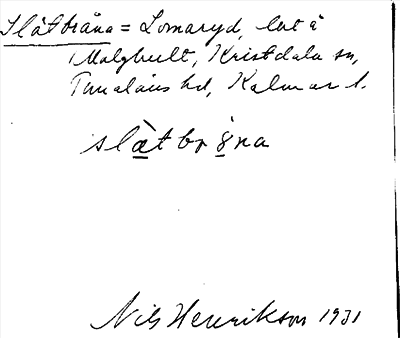 Slätbråna = Lomaryd, lut å
Malghult, Kristdala sn,
Tunaläns hd, Kalmar l.
slætbrøna
Nils Henrikson 1931